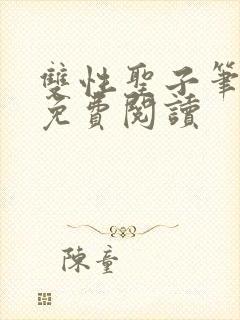 雙性聖子筆
免費閱讀
陳童